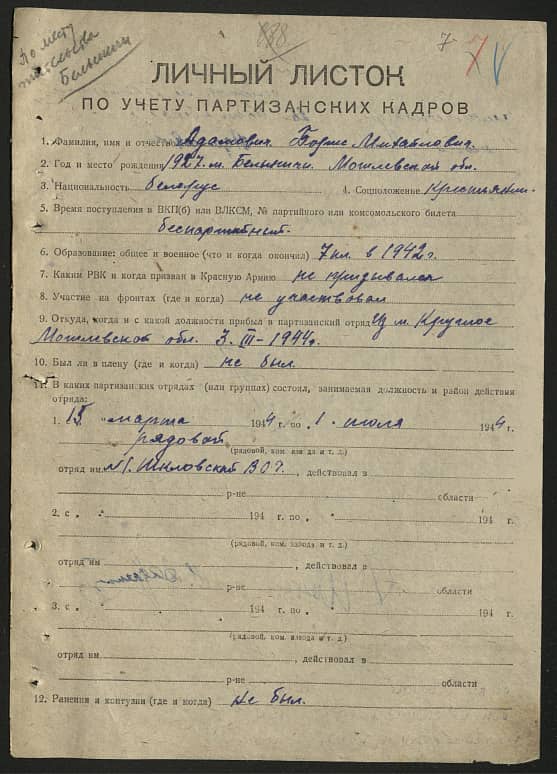 По месту
жительства
Белыничи
138
7 7 V
ЛИЧНЫЙ ЛИСТОК
ПО УЧЕТУ ПАРТИЗАНСКИХ КАДРОВ
1. Фамилия, имя и отчество Адамович Борис Михайлович.
2. Год и место рождения 1927. м. Белыничи. Могилевской обл.
3. Национальность белорус 4. Соцположение Крестьянин.
5. Время поступления в ВКП(б) или ВЛКСМ, № партийного или комсомольского билета
беспартийный.
6. Образование: общее и военное (что и когда окончил) 7 кл. в 1942 г.
7. Каким РВК и когда призван в Красную Армию не призывался
8. Участие на фронтах (где и когда) не участвовал
9. Откуда, когда и с какой должности прибыл в партизанский отряд Из м. Круглое
Могилевской обл. 3. III - 1944г.
10. Был ли в плену (где и когда) не был.
11. В каких партизанских отрядах (или группах) состоял, занимаемая должность и район действия
отряда:
1. 15 марта 1944 г. по 1. июля 1944 г.
рядовой
(рядовой, ком. взвода и т. д.)
отряд им. , действовал в
р-не области
2. с „ “ 194 г. по „ “ 194 г.
(рядовой, ком. взвода и т. д.)
отряд им , действовал в
р-не области
3. с „ “ 194 г. по „ “ 194 г.
(рядовой, ком. взвода и т. д.)
отряд им , действовал в
р-не области
12. Ранения и контузии (где и когда) не был.